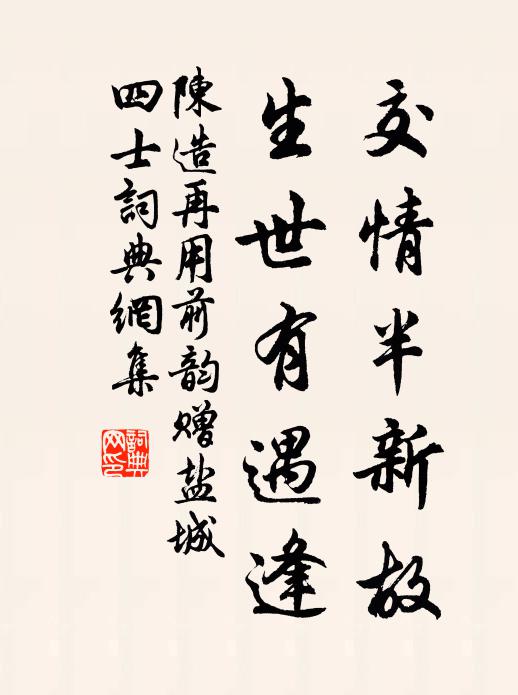 交情半新故
生世有遇逢
陳造再用前韵赠盐城
四士詞典網集
詞典网印